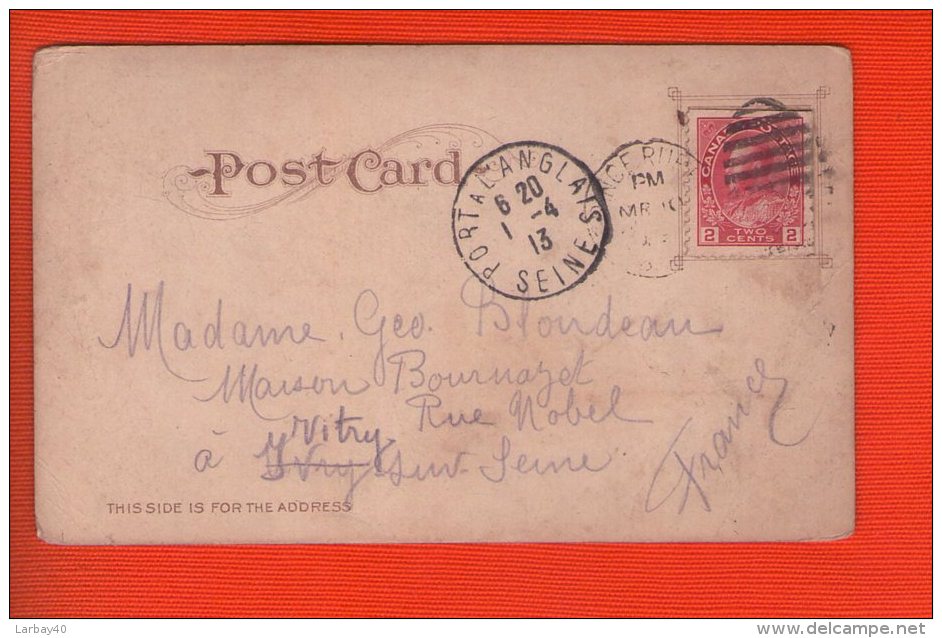 Post Card
PORT A L'ANGLAIS
6 20
1 -4
13
SEINE
PM
MR
CANADA POSTAGE
2 TWO CENTS 2
Madame Geo. Blondeau
Maison Bournazet
Rue Nobel
Vitry
à Ivry sur Seine
France
THIS SIDE IS FOR THE ADDRESS
Larbay40
delcampe.net